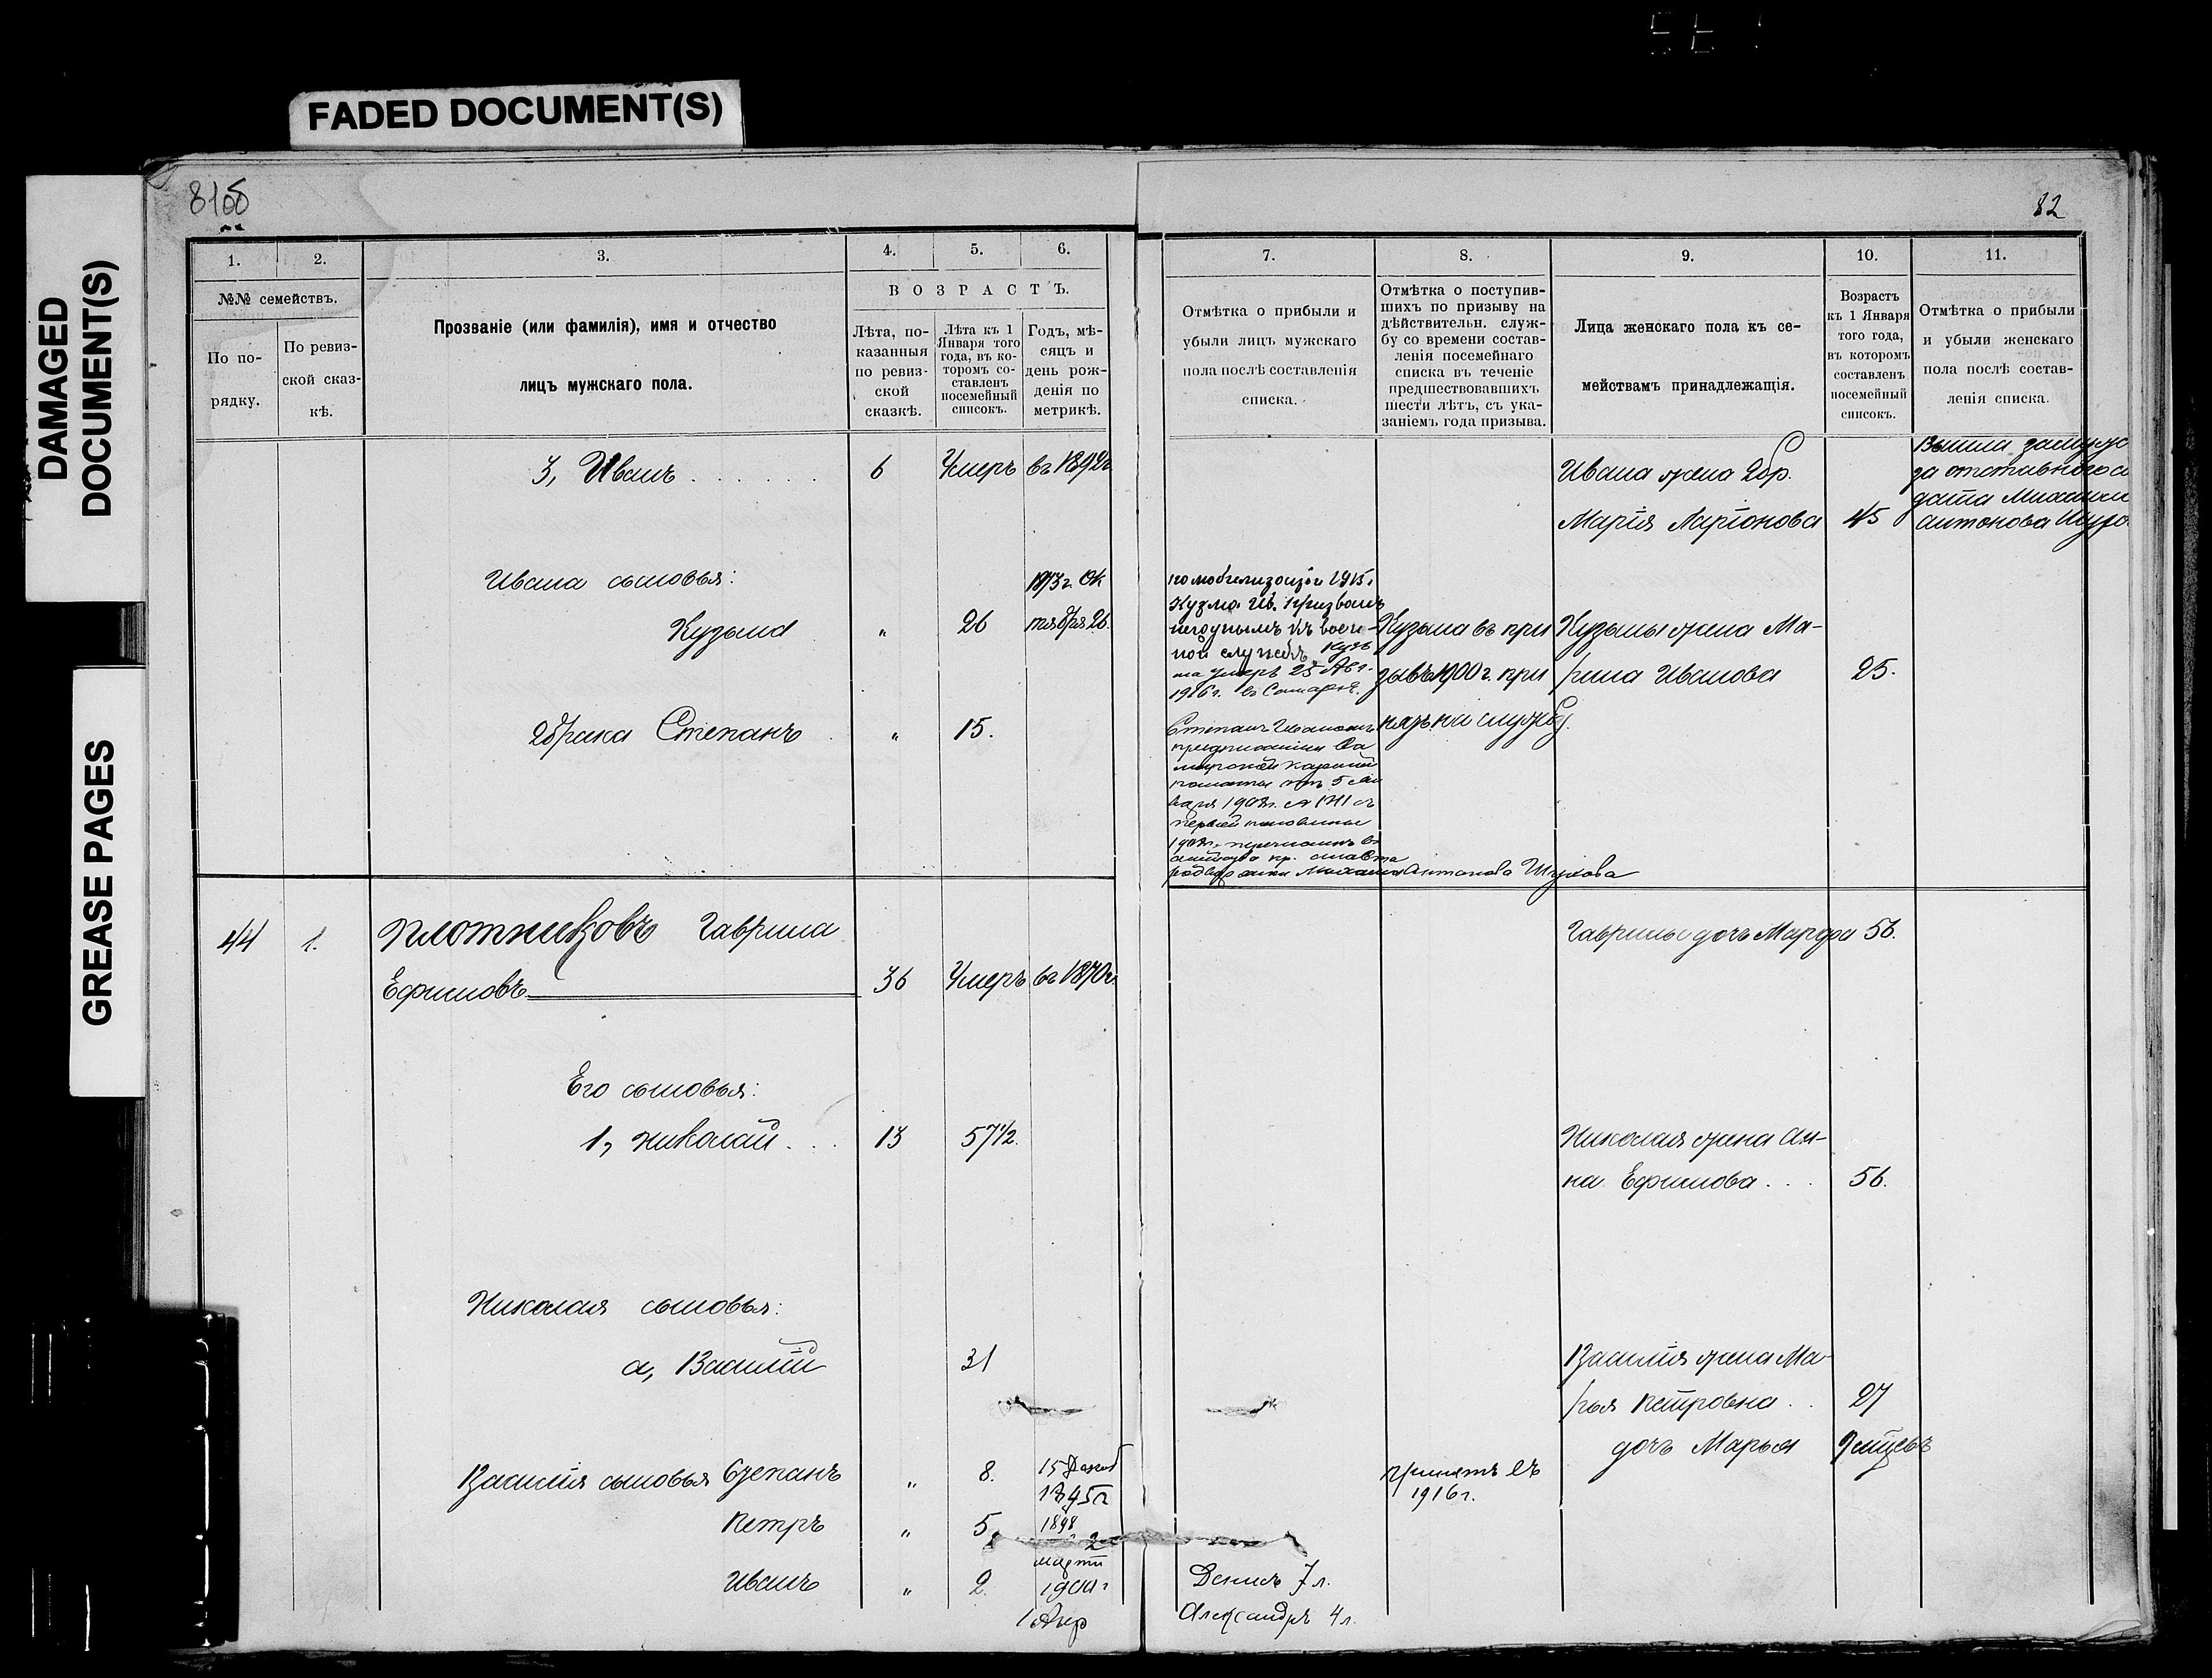 FADED DOCUMENT(S)
DAMAGED
DOCUMENT(S)
GREASE PAGES
82
1.
2.
3.
4.
5.
6.
№№ семействъ.
По по-
рядку.
По ревиз-
ской сказ-
кѣ.
Прозваніе (или фамилія), имя и отчество
лицъ мужскаго пола.
ВОЗРАСТЪ.
Лѣта, по-
казанныя
по ревиз-
ской
сказкѣ.
Лѣта къ 1
Января того
года, въ ко-
торомъ со-
ставленъ
посемейный
списокъ.
Годъ, мѣ-
сяцъ и
день рож-
денія по
метрикѣ.
7.
8.
9.
10.
11.
Отмѣтка о прибыли и
убыли лицъ мужскаго
пола послѣ составленія
списка.
Отмѣтка о поступив-
шихъ по призыву на
дѣйствительн. служ-
бу со времени состав-
ленія посемейнаго
списка въ теченіе
предшествовавшихъ
шести лѣтъ, съ ука-
заніемъ года призыва.
Лица женскаго пола къ се-
мействамъ принадлежащія.
Возрастъ
къ 1 Января
того года,
въ которомъ
составленъ
посемейный
списокъ.
Отмѣтка о прибыли
и убыли женскаго
пола послѣ состав-
ленія списка.
3, Иванъ . . . . . . 6 Умеръ въ 1892г
Ивана жена 2бр.
Марія Ларіонова 45
Вышла замуж
за отставного со
дата Михаила
антонова
Ивана сыновья:
Кузьма " 26
1873 г. Ок
тября 26.
по мобилизаціи 1915г
Кузма Ив. призванъ
негоднымъ къ воен-
ной службѣ Кузь
ма умеръ 25 Авг.
1916 г. въ Самарѣ.
Кузьма въ при
зывъ 1900 г. при
нятъ на службу.
Кузьмы жена Ма-
рина Иванова 25.
2брака Степанъ " 15.
Степанъ Ивановъ
предписанія Са
марской казенной
палаты отъ 5 Ян
варя 1908г. № 1711 съ
первой половины
1908г. перечисленъ въ
Михаила Антонова Шухова
44 1. Плотниковъ Гаврила
Ефимовъ 36 Умеръ въ 1870 г.
Гаврилы дочь Марфа 56.
Его сыновья:
1, Николай . . . 13 57 1/2.
Николая жена Ан-
на Ефимова . . . 56.
Николая сыновья:
а, Василій 31
Василія жена Ма-
рья Петровна . . 27
дочь Марья 9 мѣсяцевъ
Василія сыновья Степанъ " 8.
15 Декаб
1895г
принятъ въ
1916 г.
Петръ " 5.
1898
2
марта
Иванъ " 2.
1900 г
1 Апр
Денисъ 7 л.
Александръ 4 л.